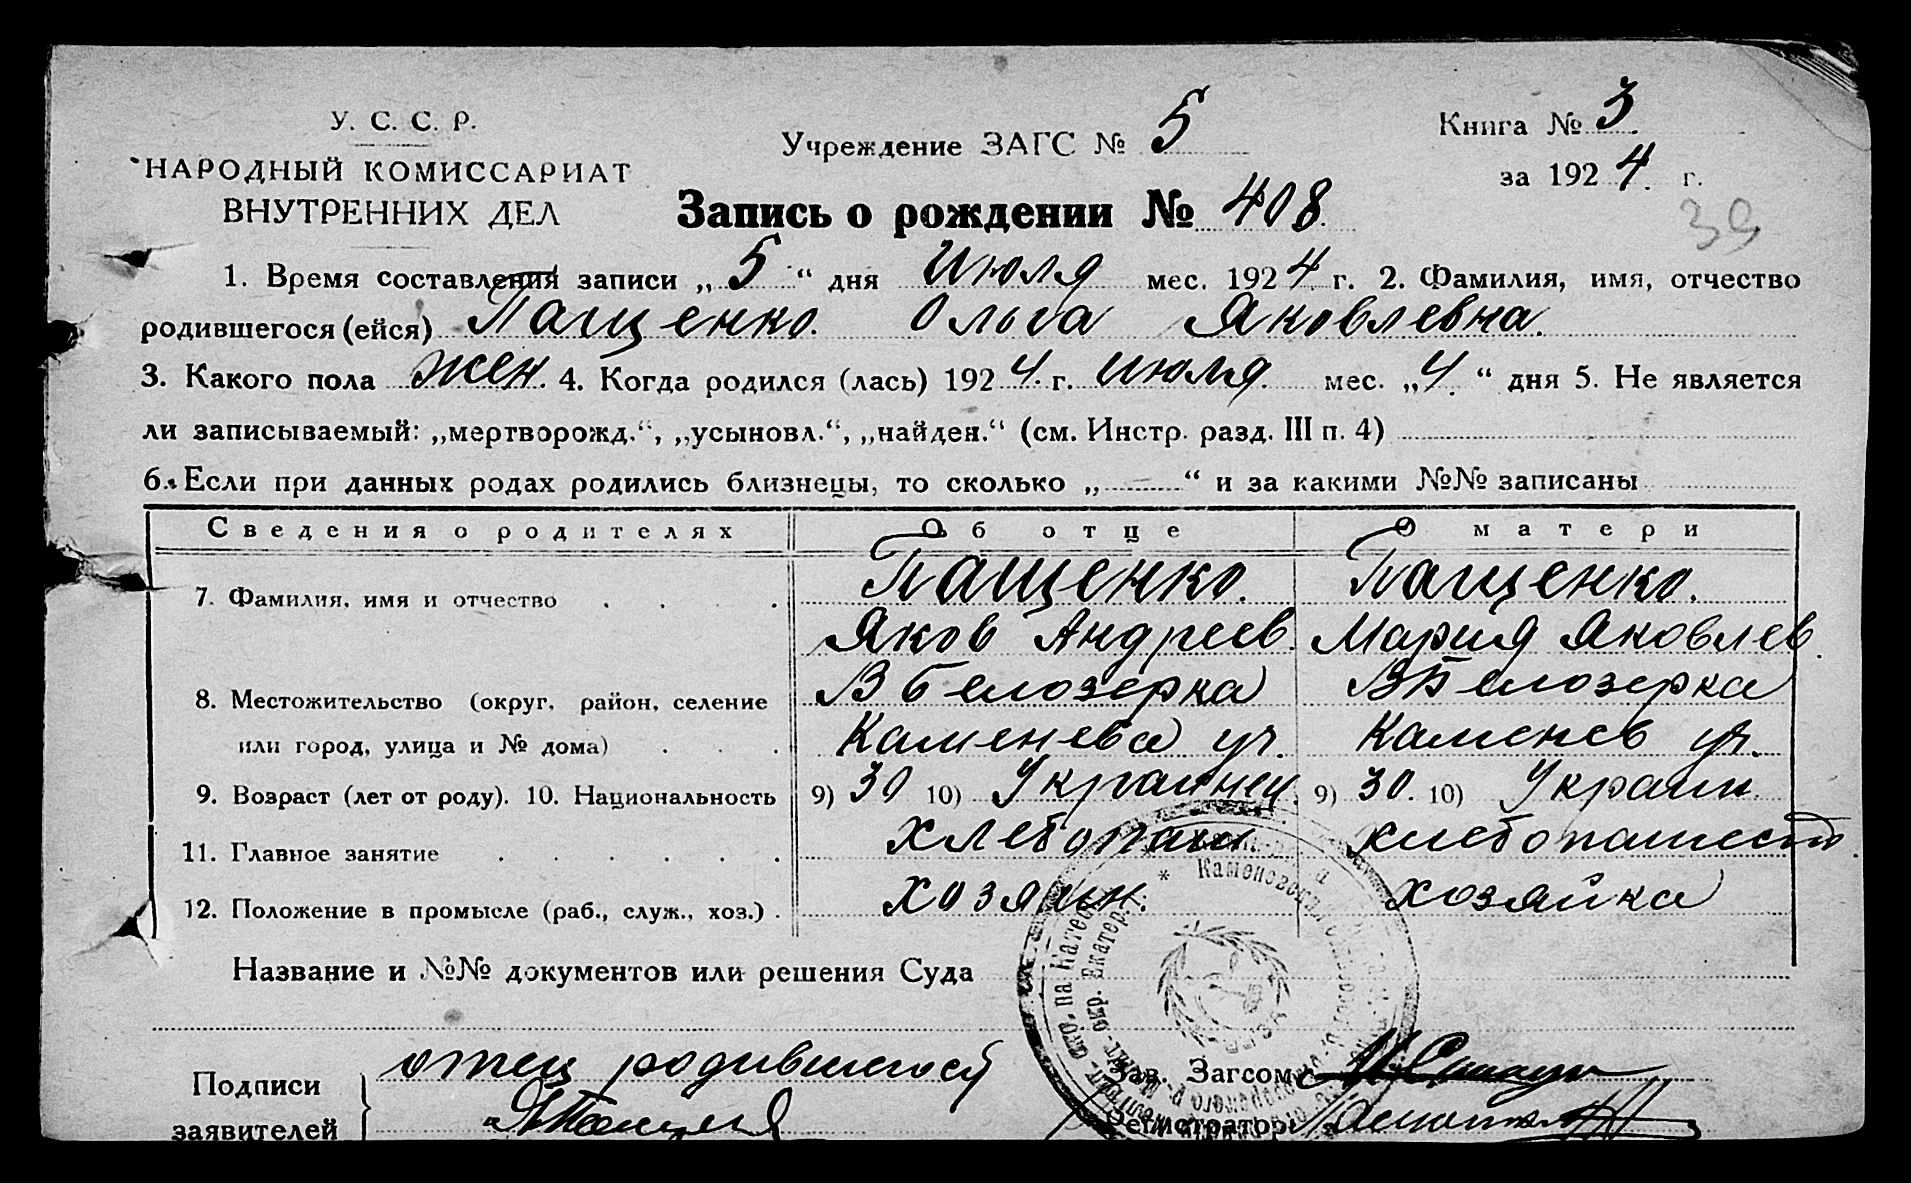 У. С. С. Р.
НАРОДНЫЙ КОМИССАРИАТ
ВНУТРЕННИХ ДЕЛ
Учреждение ЗАГС № 5
Книга № 3
за 1924 г.
Запись о рождении № 408.
39
1. Время составления записи „5“ дня Июля мес. 1924 г. 2. Фамилия, имя, отчество
родившегося (ейся) Пащенко. Ольга Яковлевна.
3. Какого пола жен. 4. Когда родился (лась) 1924. г. июля. мес. „4.“ дня 5. Не является
ли записываемый: „мертворожд.“, „усыновл.“, „найден.“ (см. Инстр. разд. III п. 4)
6. Если при данных родах родились близнецы, то сколько „ “ и за какими №№ записаны
Сведения о родителях Об отце О матери
7. Фамилия, имя и отчество Пащенко. Пащенко.
Яков Андреев. Мария Яковлев.
8. Местожительство (округ, район, селение В Белозерка В Белозерка
или город, улица и № дома) Каменева уч. Каменев уч.
9. Возраст (лет от роду). 10. Национальность 9) 30 10) Украинец. 9) 30. 10) Украин.
11. Главное занятие хлебопаш хлебопашест.
12. Положение в промысле (раб., служ., хоз.) хозяин. хозяйка
Название и №№ документов или решения Суда
Подписи
заявителей
отец родившейся
Зав. Загсом
Регистратор